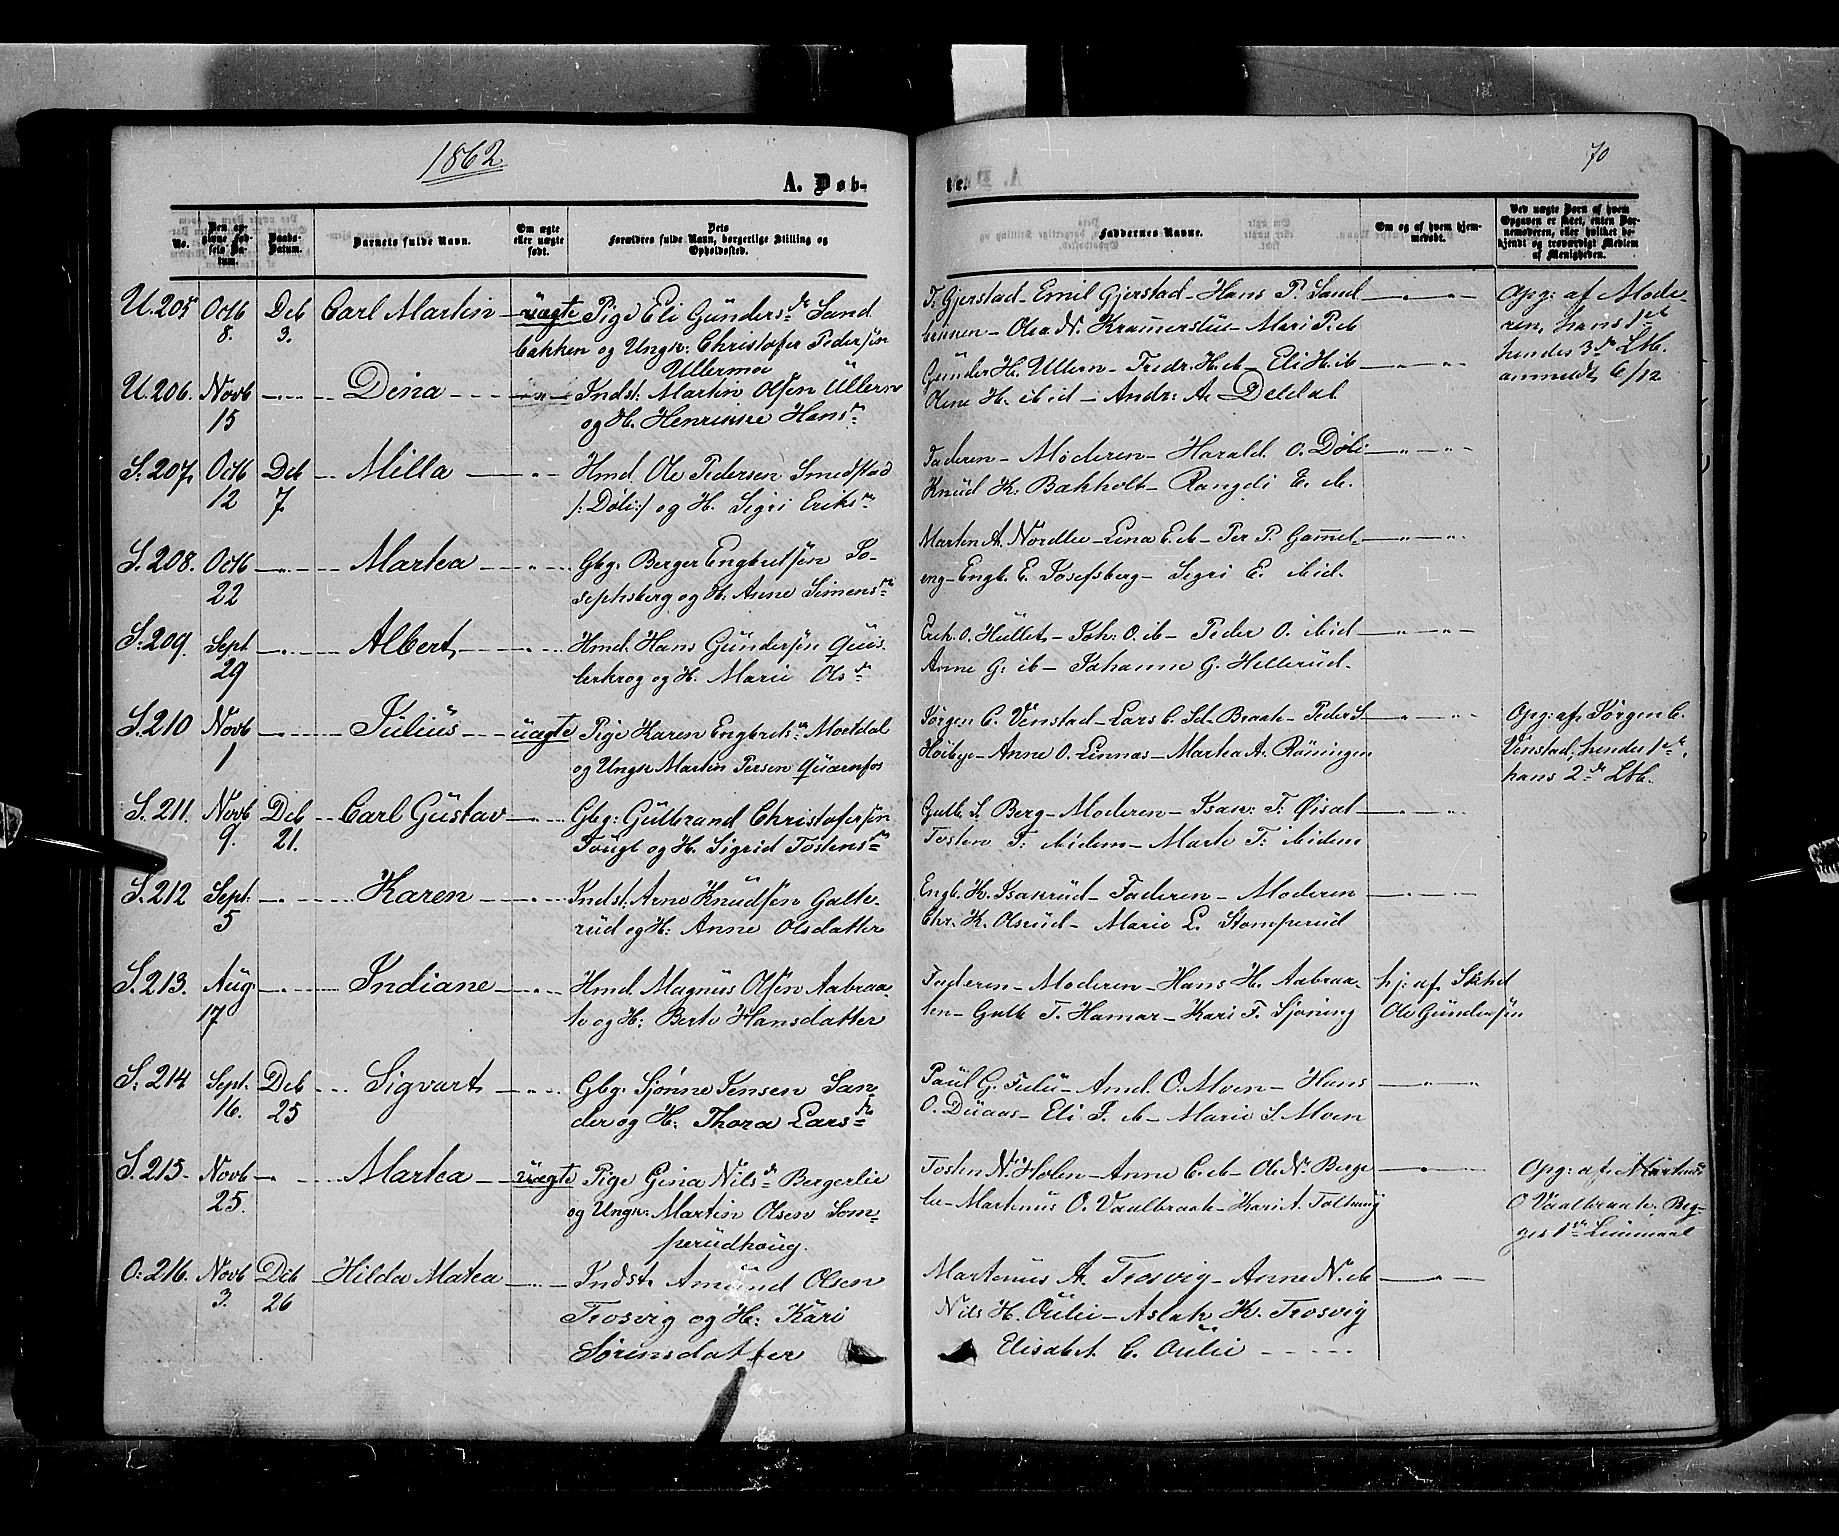 1862
70
A. Døb-
te.
No.
Den angivne Fødsels Datum.
Daabs-Datum.
Barnets fulde Navn.
Om ægte eller uægte født.
Dets Forældres fulde Navn, borgerlige Stilling og Opholdssted.
Faddernes Navne.
Om og af hvem hjemmedøbt.
Ved uægte Børn af hvem Opgaven er skeet, enten Barnemoderen, eller hvilket bekjendt og troværdigt Medlem af Menigheden.
U. 205 Octb 8. Deb 3. Carl Martin uægte Pige Eli Gunders dr Sand
bakken og Ungk: Christofer Pedersen
Ullermo
T. Gjerstad - Emil Gjerstad - Hans P. Sand
- Olea N. - Mari P. ib
Opg: af Mode-
ren, hans 1ste
hendes 3de Ltb.
anmeldt 6/12
U. 206. Novb 15 Dina Indst. Martin Olsen Ullern
og H. Hans dr
Gunder H. Ullern - Fredr. H. ib - Eli H. ib
Oline H. ibid - Andr: A.
S. 207 Octb 12 Deb 7 Milla Hmd. Ole Pedersen Smedstad
/: Døli :/ og H. Sigri Eriks dr
Faderen - Moderen - Harald O. Døli
Knud K. Bakholt - Rangdi E. ib.
S. 208. Octb 22 Martea Gbg: Berger Engbretsen Jo-
sephsberg og H. Anne Simens dr
Marten A. Nordlie - Lina E. ib - Per P. Gamel-
eng - Engb. E. Josefsberg - Sigri E. ibid.
S. 209. Sept 29 Albert Hmd. Hans Gundersen Quis
lerkrog og H. Marie Ols dr
Erik O. Hullet - Joh: O. ib - Peder O. ibid
Anne G: ib - Johanne G. Hellerud.
S. 210 Novb 1 Julius uægte Pige Karen Engbrets dr Mortdal
og Ungk Martin Persen Quærnfos
Jørgen C. Venstad - Lars C. Braate - Peder S.
Høibye - Anne O. Linnæs - Martha A. Røningen
Opg: af Jørgen C.
Venstad, hendes 1ste
hans 2de Ltb.
S. 211. Novb 9. Deb 21. Carl Gustav Gbg: Gulbrand Christofersen
Fougt og H. Sigrid Tostens dr
Gulb. S. Berg - Moderen - Isak: T. Øisat
Tosten T: ibidem - Marte T: ibidem
S. 212 Sept: 5 Karen Indst. Arne Knudsen Galte-
rud og H: Anne Olsdatter
Engb. K. Isakrud - Faderen - Moderen
Chr. K. Olsrud - Marie L. Stomperud
S. 213. Aug 17 Indiane Hmd. Magnus Olsen Aabraa-
te og H: Berte Hansdatter
Faderen - Moderen - Hans H. Aabraa-
ten - Gulb T. Hamar - Kari F. Sjøning
hj: af
Ole Gundersen
S. 214 Sept. 16. Deb 25 Sigvart Gbg: Sjønne Jensen San
der og H: Thora Lars dr
Paul G. Fulu - Amd. O. Moen - Hans
O. Duaas - Eli P. ib - Marie S. Moen
S. 215. Novb 25. Martea uægte Pige Gina Nils dr Bergerlie
og Ungk: Martin Olsen Som
perudhoug.
Tosten N. Holen - Anne C. ib - Ole N. Berge
lie - Martinus O. Vaalbraate - Kari A.
Opg: af Martinus
O Vaalbraate, Beg-
ges 1ste Leiermaal
O: 216. Novb 3. Deb 26 Hilda Matea Indst. Amund Olsen
Trosvig og H: Kari
Sørensdatter
Martinus A. Trosvig - Anne N. ib
Nils H. Oulie - Aslak K. Trosvig
Elisabet C. Oulie